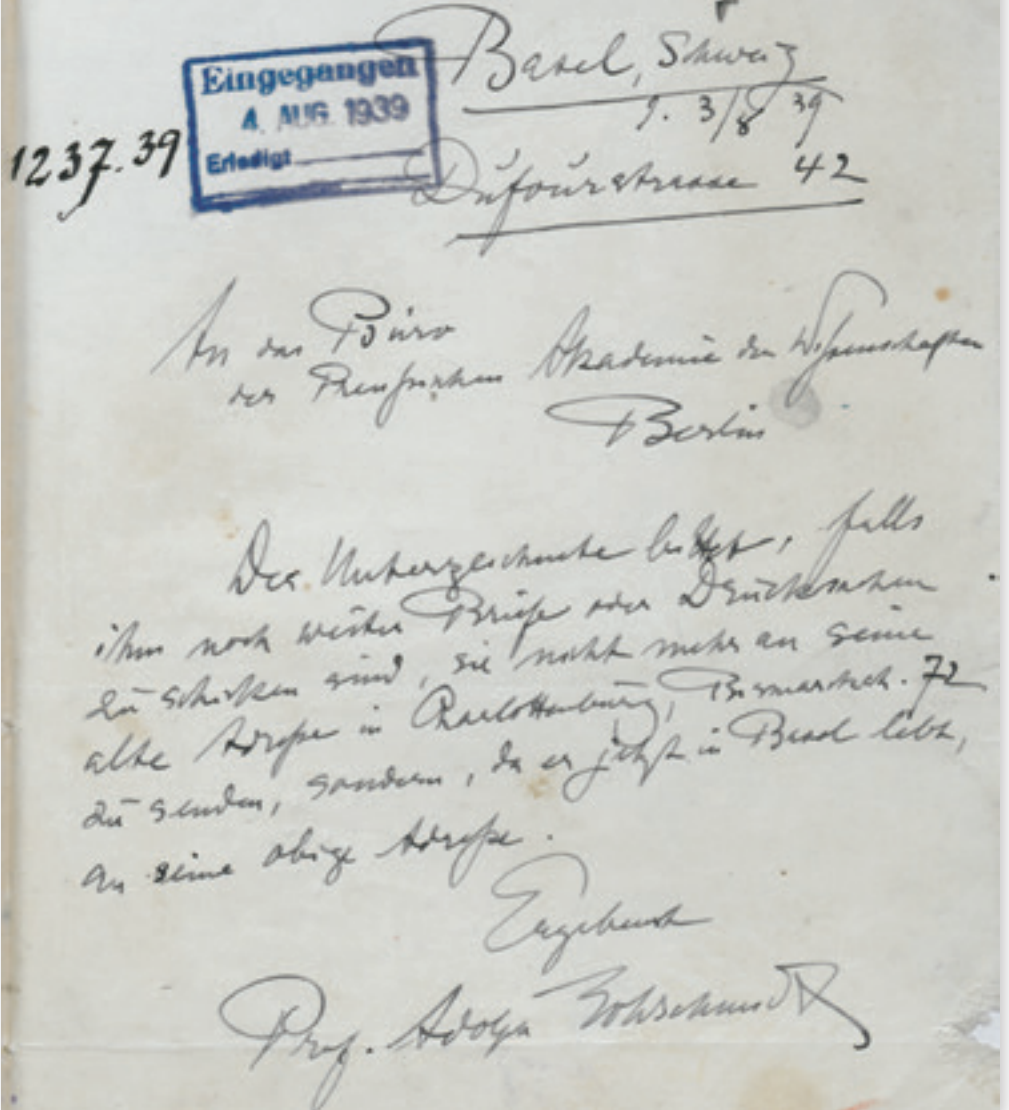 Basel, Schweiz
Eingegangen
4. AUG. 1939
Erledigt
d. 3/8 39
1237.39
Dufourstrasse 42
An das Büro
der Preußischen Akademie der Wissenschaften
Berlin
Der Unterzeichnete bittet, falls
ihm noch weiter Briefe oder Drucksachen
zu schicken sind, sie nicht mehr an seine
alte Adreße in Charlottenburg, Bismarckstr. 72
zu senden, sondern, da er jetzt in Basel lebt,
an seine obige Adreße.
Ergebenst
Prof. Adolph Goldschmidt